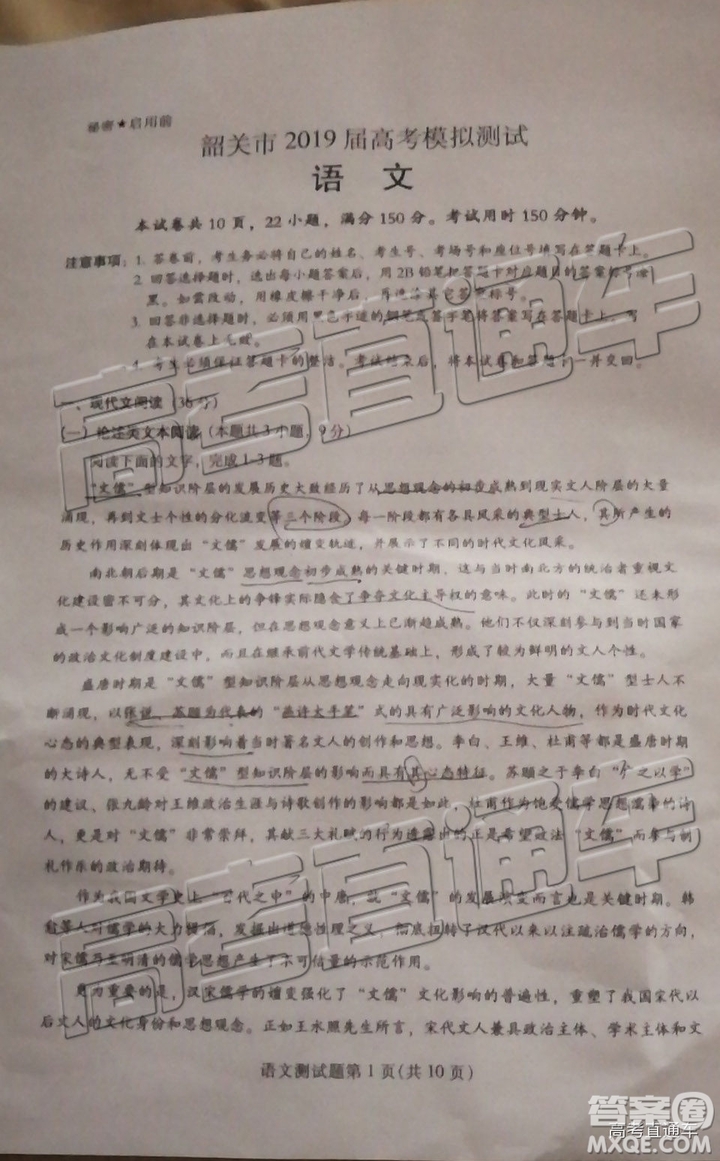 秘密★启用前
韶关市 2019 届高考模拟测试
语 文
本试卷共 10 页，22 小题，满分 150 分。考试用时 150 分钟。
注意事项：1. 答卷前，考生务必将自己的姓名、考生号、考场号和座位号填写在答题卡上。
2. 回答选择题时，选出每小题答案后，用 2B 铅笔把答题卡对应题目的答案标号涂
黑。如需改动，用橡皮擦干净后，再选涂其它答案标号。
3. 回答非选择题时，必须用黑色字迹的钢笔或签字笔将答案写在答题卡上，写
在本试卷上无效。
4. 考生必须保证答题卡的整洁。考试结束后，将本试卷和答题卡一并交回。
一、现代文阅读（36 分）
（一）论述类文本阅读（本题共 3 小题，9 分）
阅读下面的文字，完成 1-3 题。
“文儒”型知识阶层的发展历史大致经历了从思想观念的初步成熟到现实文人阶层的大量
涌现，再到文士个性的分化流变等三个阶段，每一阶段都有各具风采的典型士人，其所产生的
历史作用深刻体现出“文儒”发展的嬗变轨迹，并展示了不同的时代文化风采。
南北朝后期是“文儒”思想观念初步成熟的关键时期，这与当时南北方的统治者重视文
化建设密不可分，其文化上的争锋实际隐含了争夺文化主导权的意味。此时的“文儒”还未形
成一个影响广泛的知识阶层，但在思想观念意义上已渐趋成熟。他们不仅深刻参与到当时国家
的政治文化制度建设中，而且在继承前代文学传统基础上，形成了较为鲜明的文人个性。
盛唐时期是“文儒”型知识阶层从思想观念走向现实化的时期，大量“文儒”型士人不
断涌现，以张说、苏颋为代表的“燕许大手笔”式的具有广泛影响的文化人物，作为时代文化
心态的典型表现，深刻影响着当时著名文人的创作和思想。李白、王维、杜甫等都是盛唐时期
的大诗人，无不受“文儒”型知识阶层的影响而具有其心态特征。苏颋之于李白“广之以学”
的建议、张九龄对王维政治生涯与诗歌创作的影响都是如此，杜甫作为饱受儒学思想濡染的诗
人，更是对“文儒”非常崇拜，其献三大礼赋的行为透露出的正是希望效法“文儒”而参与制
礼作乐的政治期待。
作为我国文学史上“百代之中”的中唐，就“文儒”的发展嬗变而言也是关键时期。韩
愈等人对儒学的大力提倡，发掘出道德性理之义，彻底扭转了汉代以来以注疏治儒学的方向，
对宋儒乃至明清的儒学思想产生了不可估量的示范作用。
更为重要的是，汉宋儒学的嬗变强化了“文儒”文化影响的普遍性，重塑了我国宋代以
后文人的文化身份和思想观念。正如王水照先生所言，宋代文人兼具政治主体、学术主体和文
语文测试题第 1 页(共 10 页)
高考直通车
高考直通车
答案卷
高考直通车
MXQE.COM